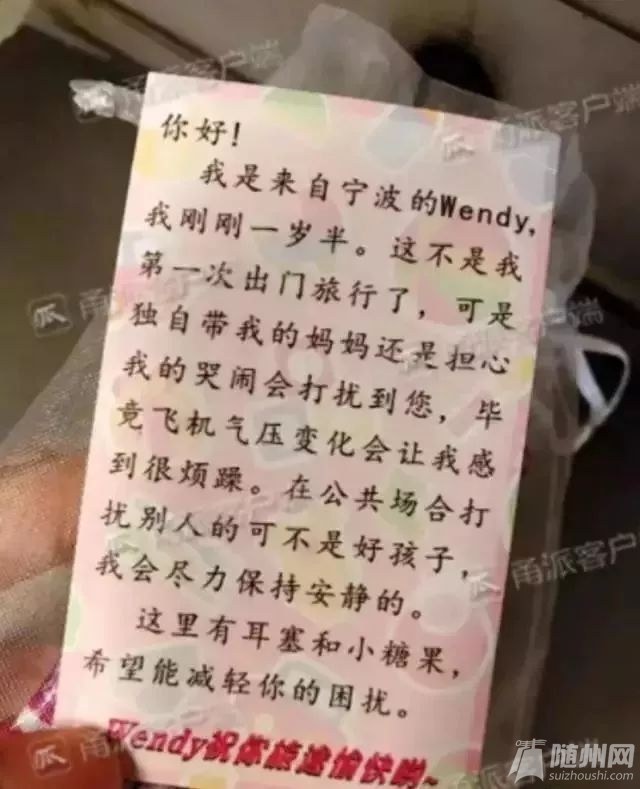 你好!
我是来自宁波的Wendy,
我刚刚一岁半。这不是我
第一次出门旅行了,可是
独自带我的妈妈还是担心
我的哭闹会打扰到您,毕
竟飞机气压变化会让我感
到很烦躁。在公共场合打
扰别人的可不是好孩子,
我会尽力保持安静的。
这里有耳塞和小糖果,
希望能减轻你的困扰。
Wendy祝你旅途愉快哟~
甬派客户端
甬派客户端
甬派客户端
甬派客户端
甬派客户端
甬派客户端
随州网
suizhoushi.com